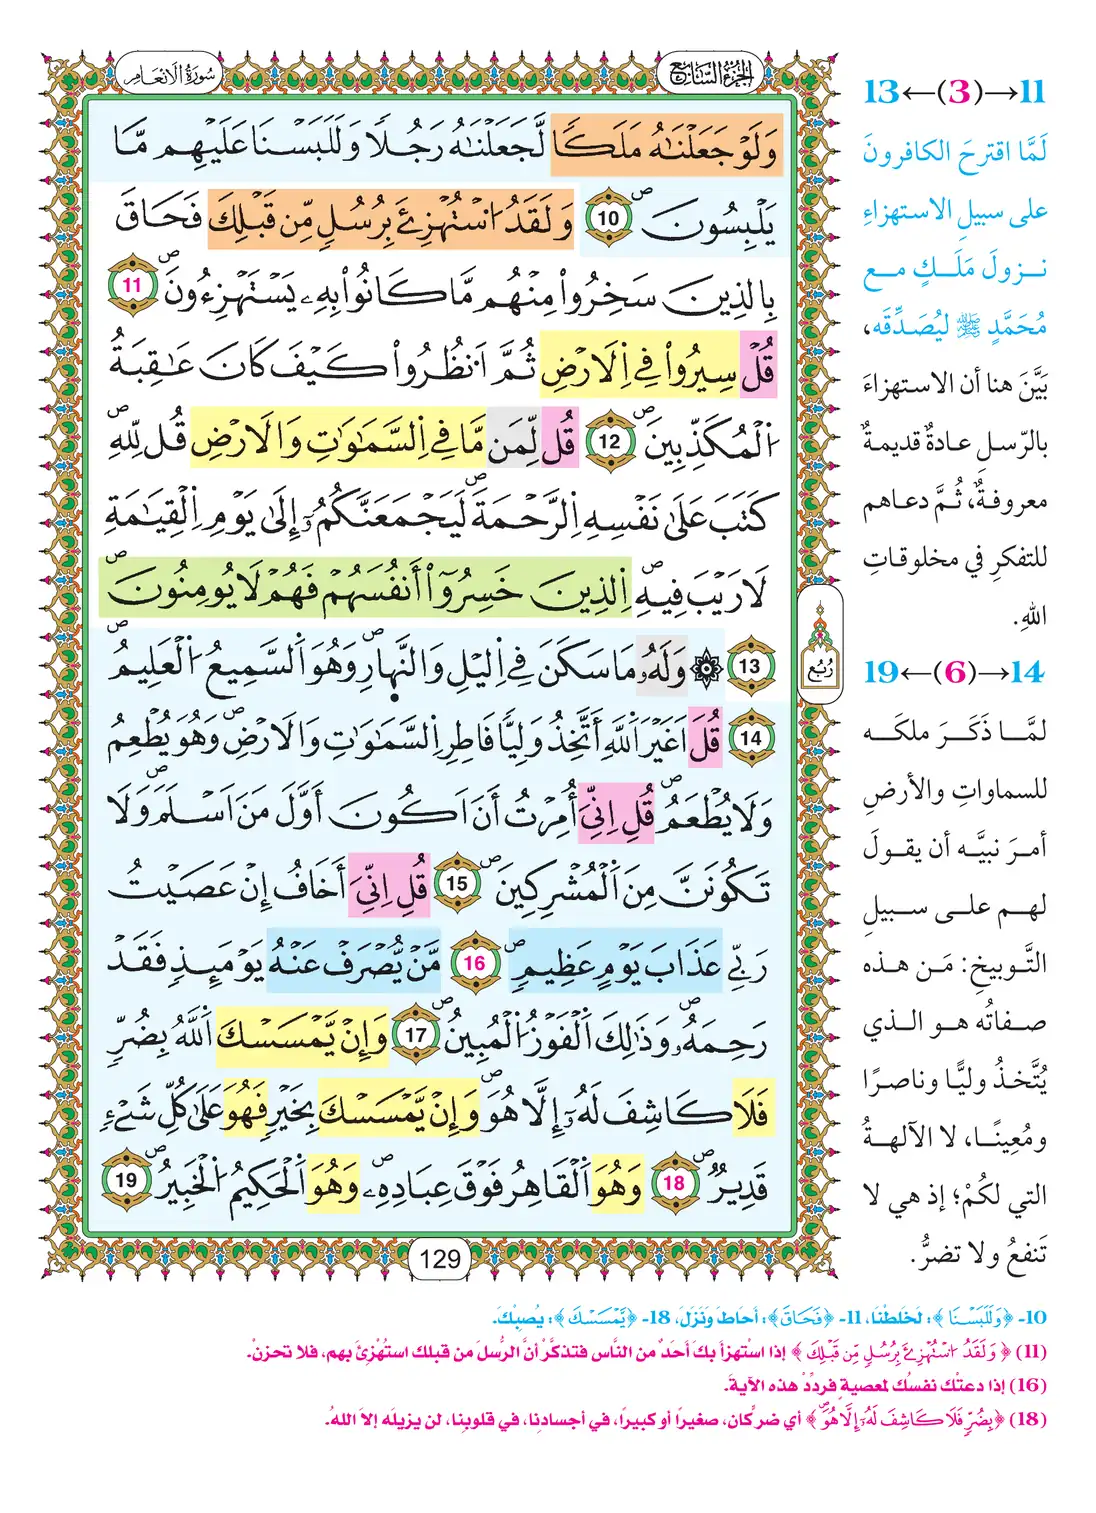 الجزء السابع
سورة الانعام
وَلَوْ جَعَلْنَٰهُ مَلَكًا لَّجَعَلْنَٰهُ رَجُلًا وَلَلَبَسْنَا عَلَيْهِم مَّا
يَلْبِسُونَ ۖ 10 وَلَقَدُ اسْتُهْزِئَ بِرُسُلٍ مِّن قَبْلِكَ فَحَاقَ
بِالذِينَ سَخِرُواْ مِنْهُم مَّا كَانُواْ بِهِۦ يَسْتَهْزِءُونَ ۖ 11
قُلْ سِيرُواْ فِے اِلَارْضِ ثُمَّ اَنظُرُواْ كَيْفَ كَانَ عَٰقِبَةُ
اُلْمُكَذِّبِينَ ۖ 12 قُل لِّمَن مَّا فِے اِلسَّمَٰوَٰتِ وَالَارْضِ قُل لِلهِ
كَتَبَ عَلَىٰ نَفْسِهِ اِلرَّحْمَةَ ۖ لَيَجْمَعَنَّكُمُۥٓ إِلَىٰ يَوْمِ اِلْقِيَٰمَةِ
لَا رَيْبَ فِيهِ ۖ اِلذِينَ خَسِرُوٓاْ أَنفُسَهُمْ فَهُمْ لَا يُومِنُونَ ۖ
13 ۞ وَلَهُۥ مَا سَكَنَ فِے اِليْلِ وَالنَّهٰارِ ۖ وَهُوَ اَلسَّمِيعُ اُلْعَلِيمُ ۖ
14 قُلَ اَغَيْرَ اَللَّهِ أَتَّخِذُ وَلِيّاً فَاطِرِ اِلسَّمَٰوَٰتِ وَالَارْضِ ۖ وَهُوَ يُطْعِمُ
وَلَا يُطْعَمُ ۖ قُلِ اِنِّيَ أُمِرْتُ أَنَ اَكُونَ أَوَّلَ مَنَ اَسْلَمَ ۖ وَلَا
تَكُونَنَّ مِنَ اَلْمُشْرِكِينَ ۖ 15 قُلِ اِنِّيَ أَخَافُ إِنْ عَصَيْتُ
رَبِّے عَذَابَ يَوْمٍ عَظِيمٍ ۖ 16 مَّنْ يُّصْرَفْ عَنْهُ يَوْمَئِذٍ فَقَدْ
رَحِمَهُۥ ۖ وَذَٰلِكَ اَلْفَوْزُ اُلْمُبِينُ ۖ 17 وَإِنْ يَّمْسَسْكَ اَللَّهُ بِضُرٍّ
فَلَا كَاشِفَ لَهُۥٓ إِلَّا هُوَ ۖ وَإِنْ يَّمْسَسْكَ بِخَيْرٍ فَهُوَ عَلَىٰ كُلِّ شَےْءٍ
قَدِيرٌ ۖ 18 وَهُوَ اَلْقَاهِرُ فَوْقَ عِبَادِهِۦ ۖ وَهُوَ اَلْحَكِيمُ اُلْخَبِيرُ ۖ 19
ربع
129
13←(3)→11
لَمَّا اقترحَ الكافرونَ
على سبيلِ الاستهزاءِ
نـزولَ مَلَـكٍ مـع
مُحَمَّدٍ ﷺ ليُصَدِّقَه،
بَيَّنَ هنا أن الاستهزاءَ
بالرّسلِ عادةٌ قديمةٌ
معروفةٌ، ثُمَّ دعاهم
للتفكرِ في مخلوقاتِ
اللهِ.
19←(6)→14
لمَّـا ذَكَـرَ ملكَـه
للسماواتِ والأرضِ
أمـرَ نبيَّـه أن يقـولَ
لهـم علـى سـبيلِ
التَّـوبيخِ: مَـن هـذه
صـفاتُه هـو الـذي
يُتَّخذُ وليًّا وناصرًا
ومُعِينًـا، لا الآلهـةُ
التي لكُمْ؛ إذ هي لا
تَنفعُ ولا تضرُّ.
10- ﴿وَلَلَبَسْنَا﴾: لَخَلطْنَا، 11- ﴿فَحَاقَ﴾: أحَاطَ ونَزَلَ، 18- ﴿يَّمْسَسْكَ﴾: يُصِبْكَ.
(11) ﴿وَلَقَدُ اسْتُهْزِئَ بِرُسُلٍ مِّن قَبْلِكَ﴾ إذا استهزأ بكَ أحَدٌ من النَّاس فتذكَّرْ أنَّ الرُّسلَ من قبلك استُهْزِئَ بهم، فلا تحزنْ.
(16) إذا دعتْك نفسُك لمعصيةٍ فردِّدْ هذه الآيةَ.
(18) ﴿بِضُرٍّ فَلَا كَاشِفَ لَهُۥٓ إِلَّا هُوَ ۖ﴾ أي ضر كان، صغيرًا أو كبيرًا، في أجسادنا، في قلوبنا، لن يزيلَه إلا اللهُ.